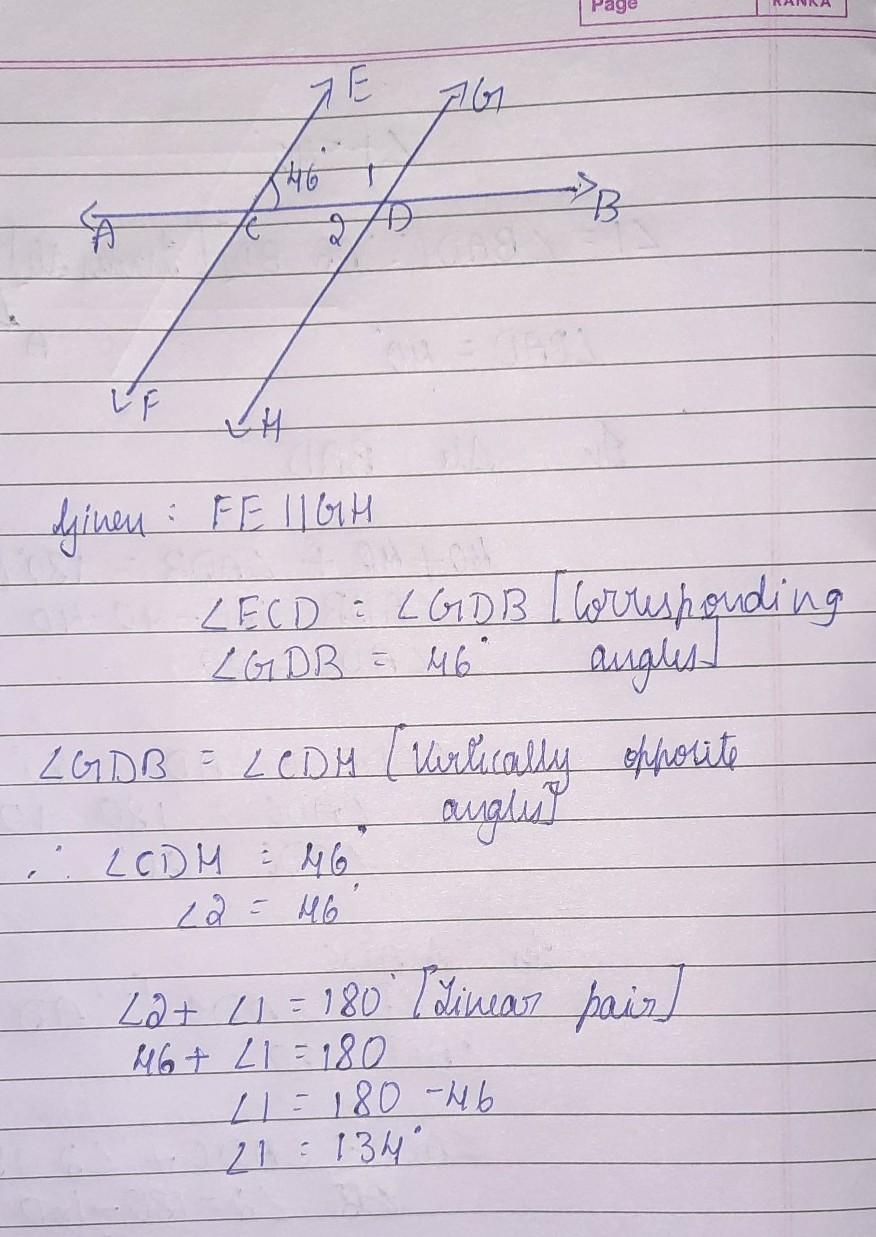 Page
RANKA
E
G
46°
1
A
C
2
D
B
F
H
Given : FE || GH
∠ECD = ∠GDB [Corresponding
∠GDB = 46° angles]
∠GDB = ∠CDH [Vertically opposite
angles]
∴ ∠CDH = 46°
∠2 = 46°
∠2 + ∠1 = 180° [Linear pair]
46 + ∠1 = 180
∠1 = 180 - 46
∠1 = 134°